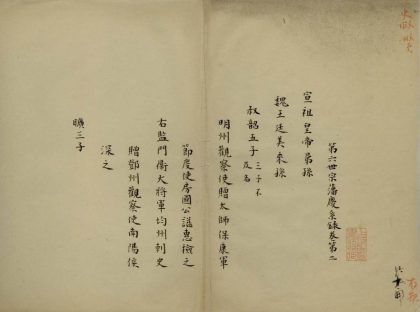 第六世宗藩慶系錄卷第二
宣祖皇帝弟孫
魏王廷美來孫
叔韶五子 三子不及名
明州觀察使贈太師保康軍
節度使房國公諡惠撿之
右監門衛大將軍均州刺史
贈鄧州觀察使南陽侯
深之
曠三子